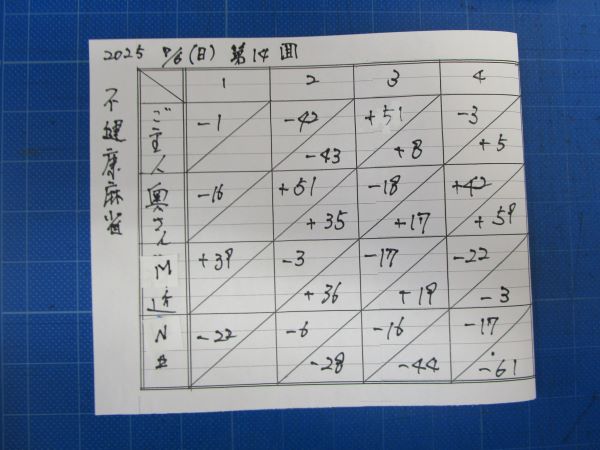 2025 7/6 (日) 第14回
不健康麻雀
1 2 3 4
ご主人 -1 -42 -43 +51 +8 -3 +5
奥さん -16 +51 +35 -18 +17 +42 +59
M +39 -3 +36 -17 +19 -22 -3
N -22 -6 -28 -16 -44 -17 -61